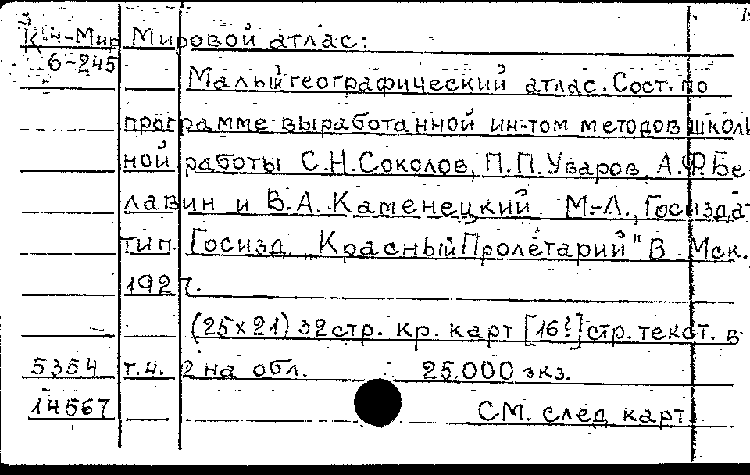 Кч-Мир Мировой атлас:
6-245
Малый географический атлас. Сост. по
программе выработанной ин-том методов школь
ной работы С.Н.Соколов, П.П.Уваров, А.Ф.Бе-
лавин и В.А.Каменецкий М-Л., Госиздат
тип. Госизд. „Красный Пролетарий" В Мск.
1927.
(25х21) 32 стр. кр. карт [16?] стр. текст. в
5354 т.ч. 2 на обл. 25.000 экз.
14567 СМ. след карт